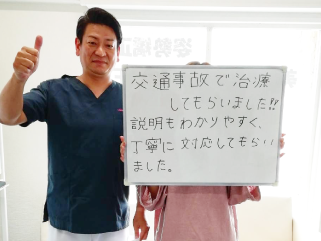 交通事故で治療
してもらいました!!
説明もわかりやすく、
丁寧に対応してもらい
ました。